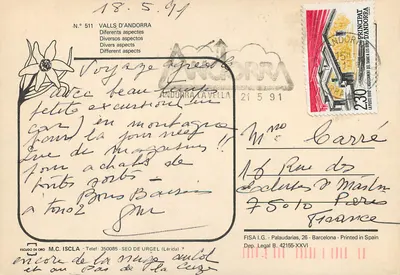 18.5.91
N.º 511 VALLS D'ANDORRA
Diferents aspectes
Diversos aspectos
Divers aspects
Different aspects
Voyage agréable
avec beau
petite excursion en
car en montagne
pour la journée
de magasins
pour achats de
toutes sortes
Bons Baisers
a tous 2
encore de la neige
et au Pas de la Case
ANDORRA
ANDORRA LA VELLA 21.5.91
PRINCIPAT
D'ANDORRA
2,30
Mme Carré
16 Rue des
75010 Paris
France
M.C. ISCLA - Telef. 350088 - SEO DE URGEL (Lérida)
FISA I.G. - Palaudarias, 26 - Barcelona - Printed in Spain
Dep. Legal B. 42155-XXVI